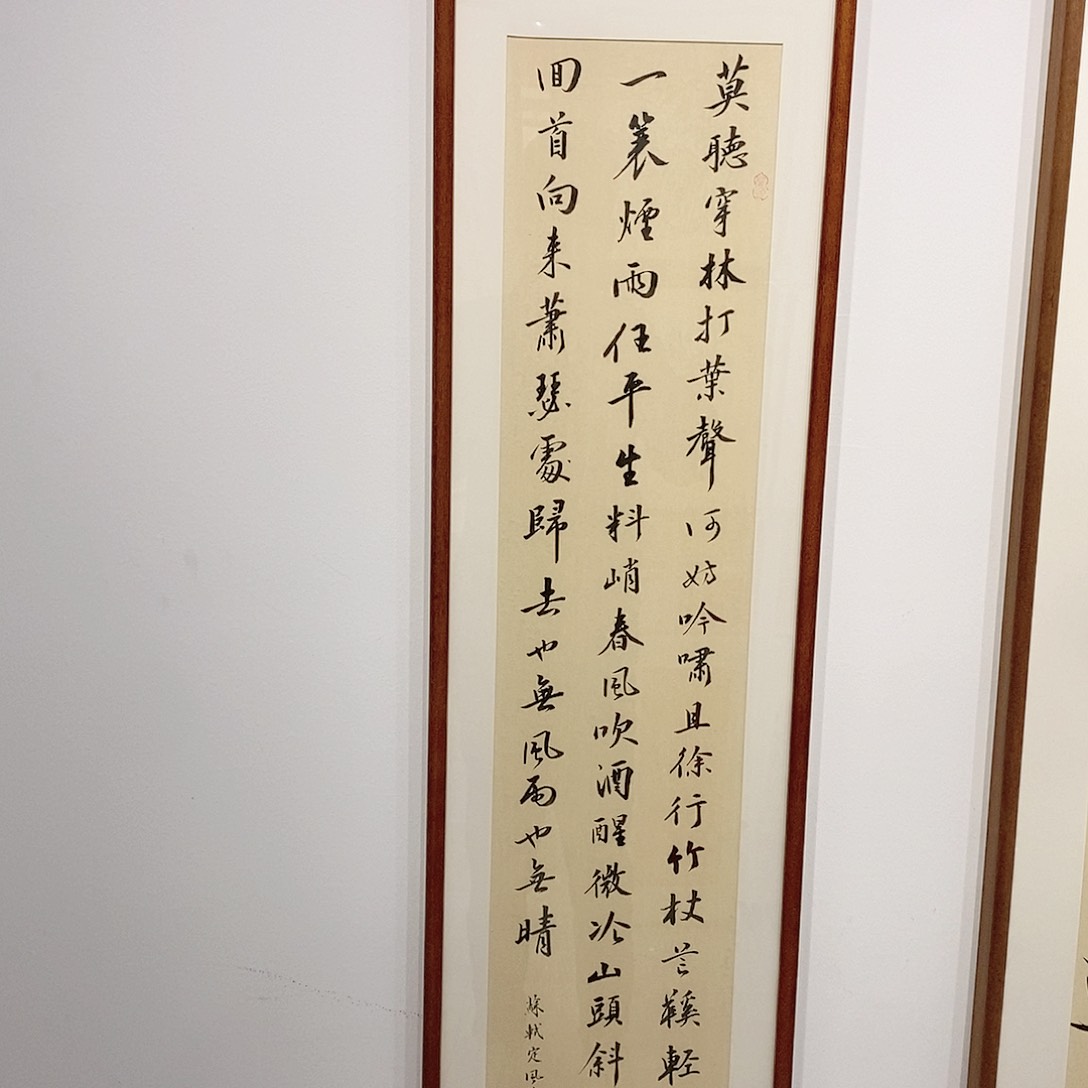 莫聽穿林打葉聲何妨吟嘯且徐行竹杖芒鞵輕
一蓑煙雨任平生料峭春風吹酒醒微冷山頭斜
回首向来蕭瑟處歸去也無風雨也無晴
蘇軾定風